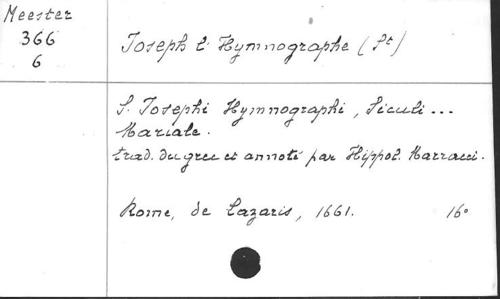 Meester
366
6
Joseph l'Hymnographe (St)
S. Josephi Hymnographi, Siculi...
Mariale.
trad. du grec et annoté par Hippol. Marracci.
Rome, de Lazaris, 1661. 16°